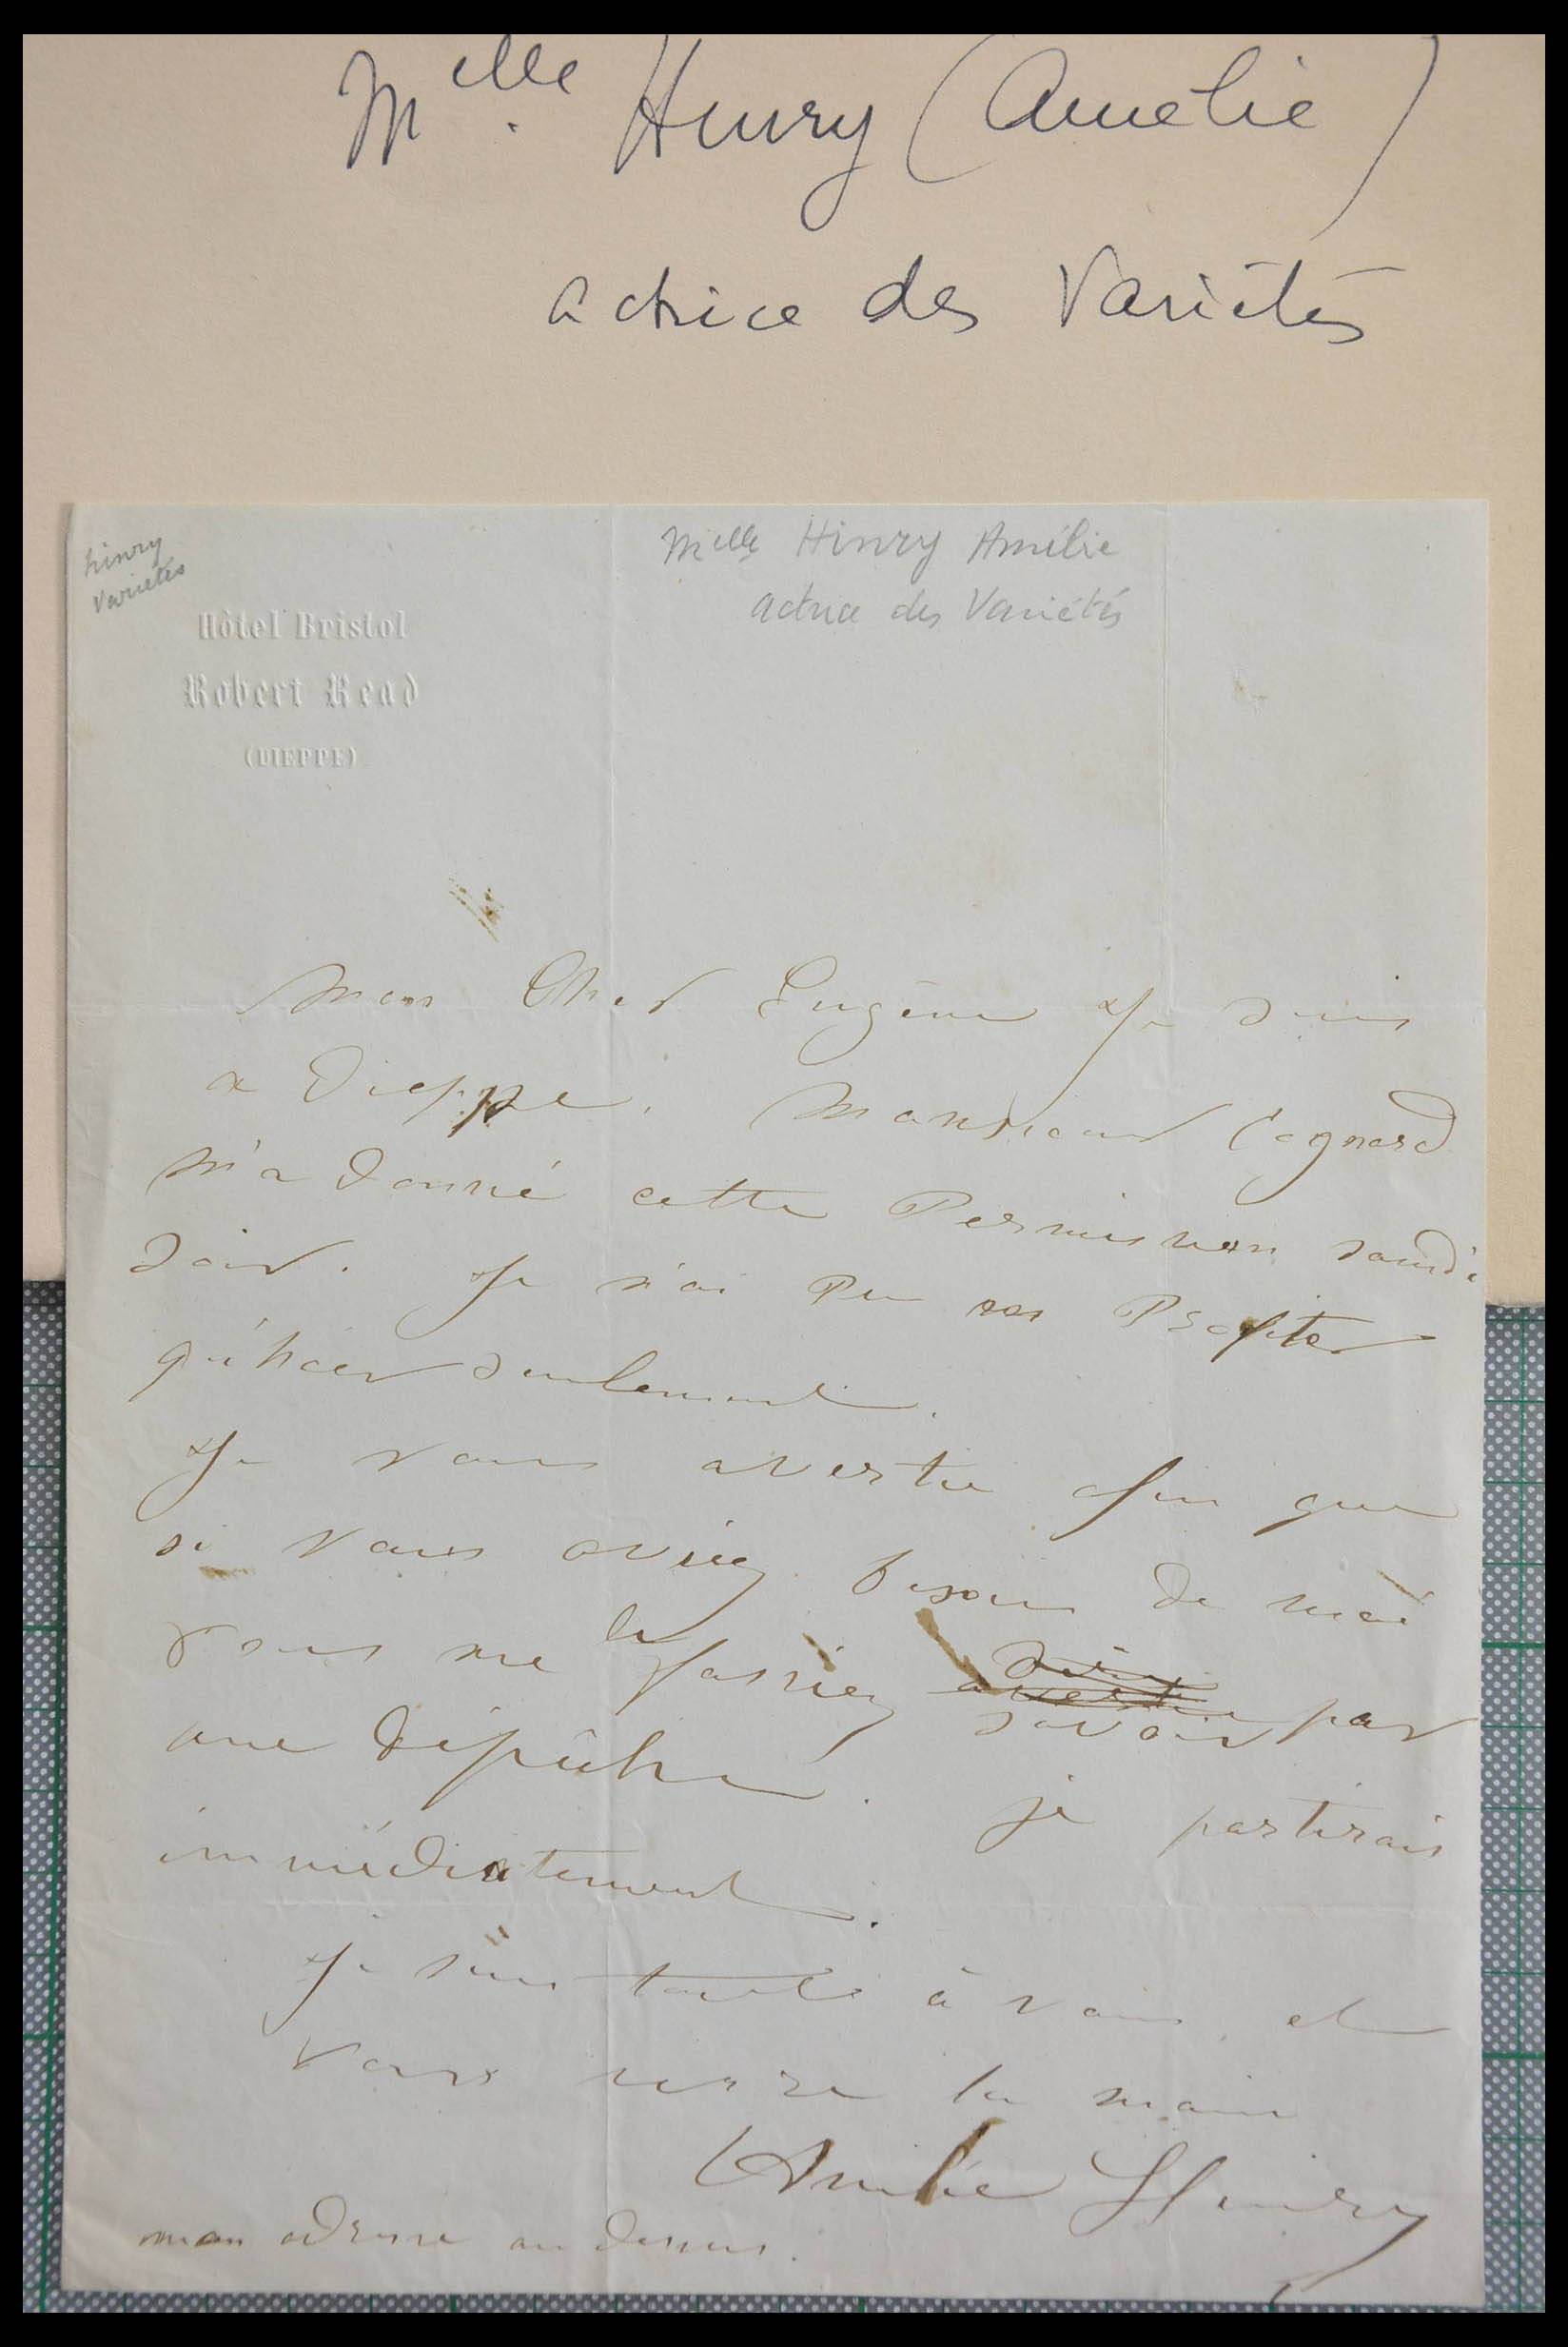 Melle Henry (Amélie)
actrice des Variétés
henry
Variétés
Melle Henry Amélie
actrice des Variétés
Hôtel Bristol
Robert Read
(DIEPPE)
Mon Cher Eugène Je suis
a Dieppe. Monsieur Cognard
m'a donné cette Permission samdi
soir. Je n'ai Pu en Profiter
qu'hier seulement.
Je vous avertie afin que
si vous aviez besoin de moi
vous me le fassiez savoir par
une dépêche. je partirais
immédiatement.
Je suis toute à vous et
vous serre la main
Amélie Henry
mon adresse au dessus.